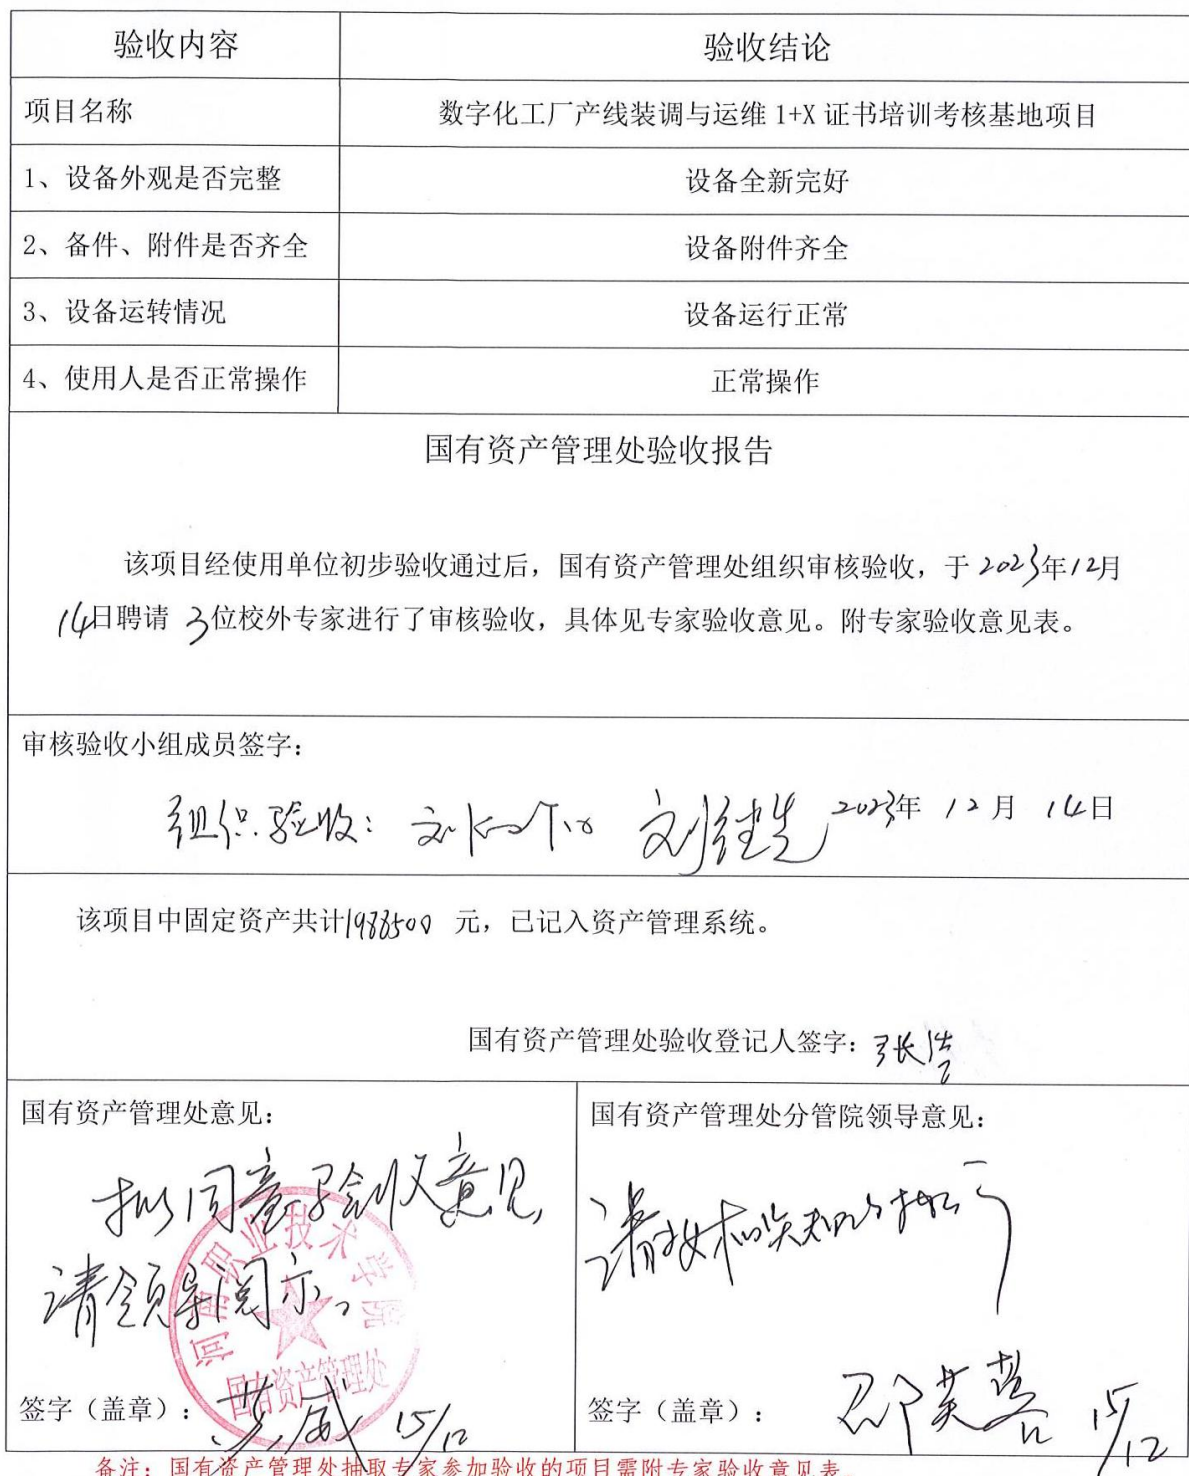 验收内容 验收结论
项目名称 数字化工厂产线装调与运维 1+X 证书培训考核基地项目
1、设备外观是否完整 设备全新完好
2、备件、附件是否齐全 设备附件齐全
3、设备运转情况 设备运行正常
4、使用人是否正常操作 正常操作
国有资产管理处验收报告
该项目经使用单位初步验收通过后，国有资产管理处组织审核验收，于2023年12月
14日聘请 3位校外专家进行了审核验收，具体见专家验收意见。附专家验收意见表。
审核验收小组成员签字：
组织验收： 刘 刘 2023年 12月 14日
该项目中固定资产共计1988500 元，已记入资产管理系统。
国有资产管理处验收登记人签字：张浩
国有资产管理处意见：
拟同意验收意见，
请领导阅示。
河南职业技术学院
国有资产管理处
签字（盖章）： 威 15/12
国有资产管理处分管院领导意见：
请按
签字（盖章）： 邵芙蓉 15/12
备注：国有资产管理处抽取专家参加验收的项目需附专家验收意见表。